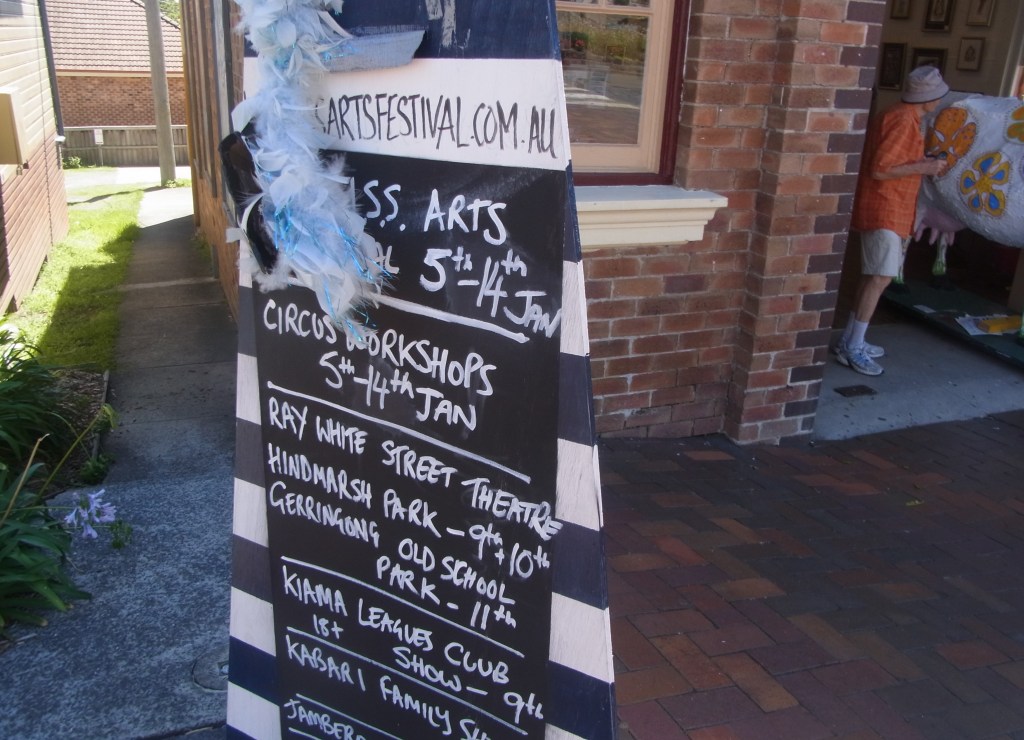 SARTSFESTIVAL.COM.AU
S.S. ARTS
AL 5th-14th JAN
CIRCUS WORKSHOPS
5th-14th JAN
RAY WHITE STREET THEATRE
HINDMARSH PARK - 9th + 10th
GERRINGONG OLD SCHOOL
PARK - 11th
KIAMA LEAGUES CLUB
18+ SHOW - 9th
KABARI FAMILY